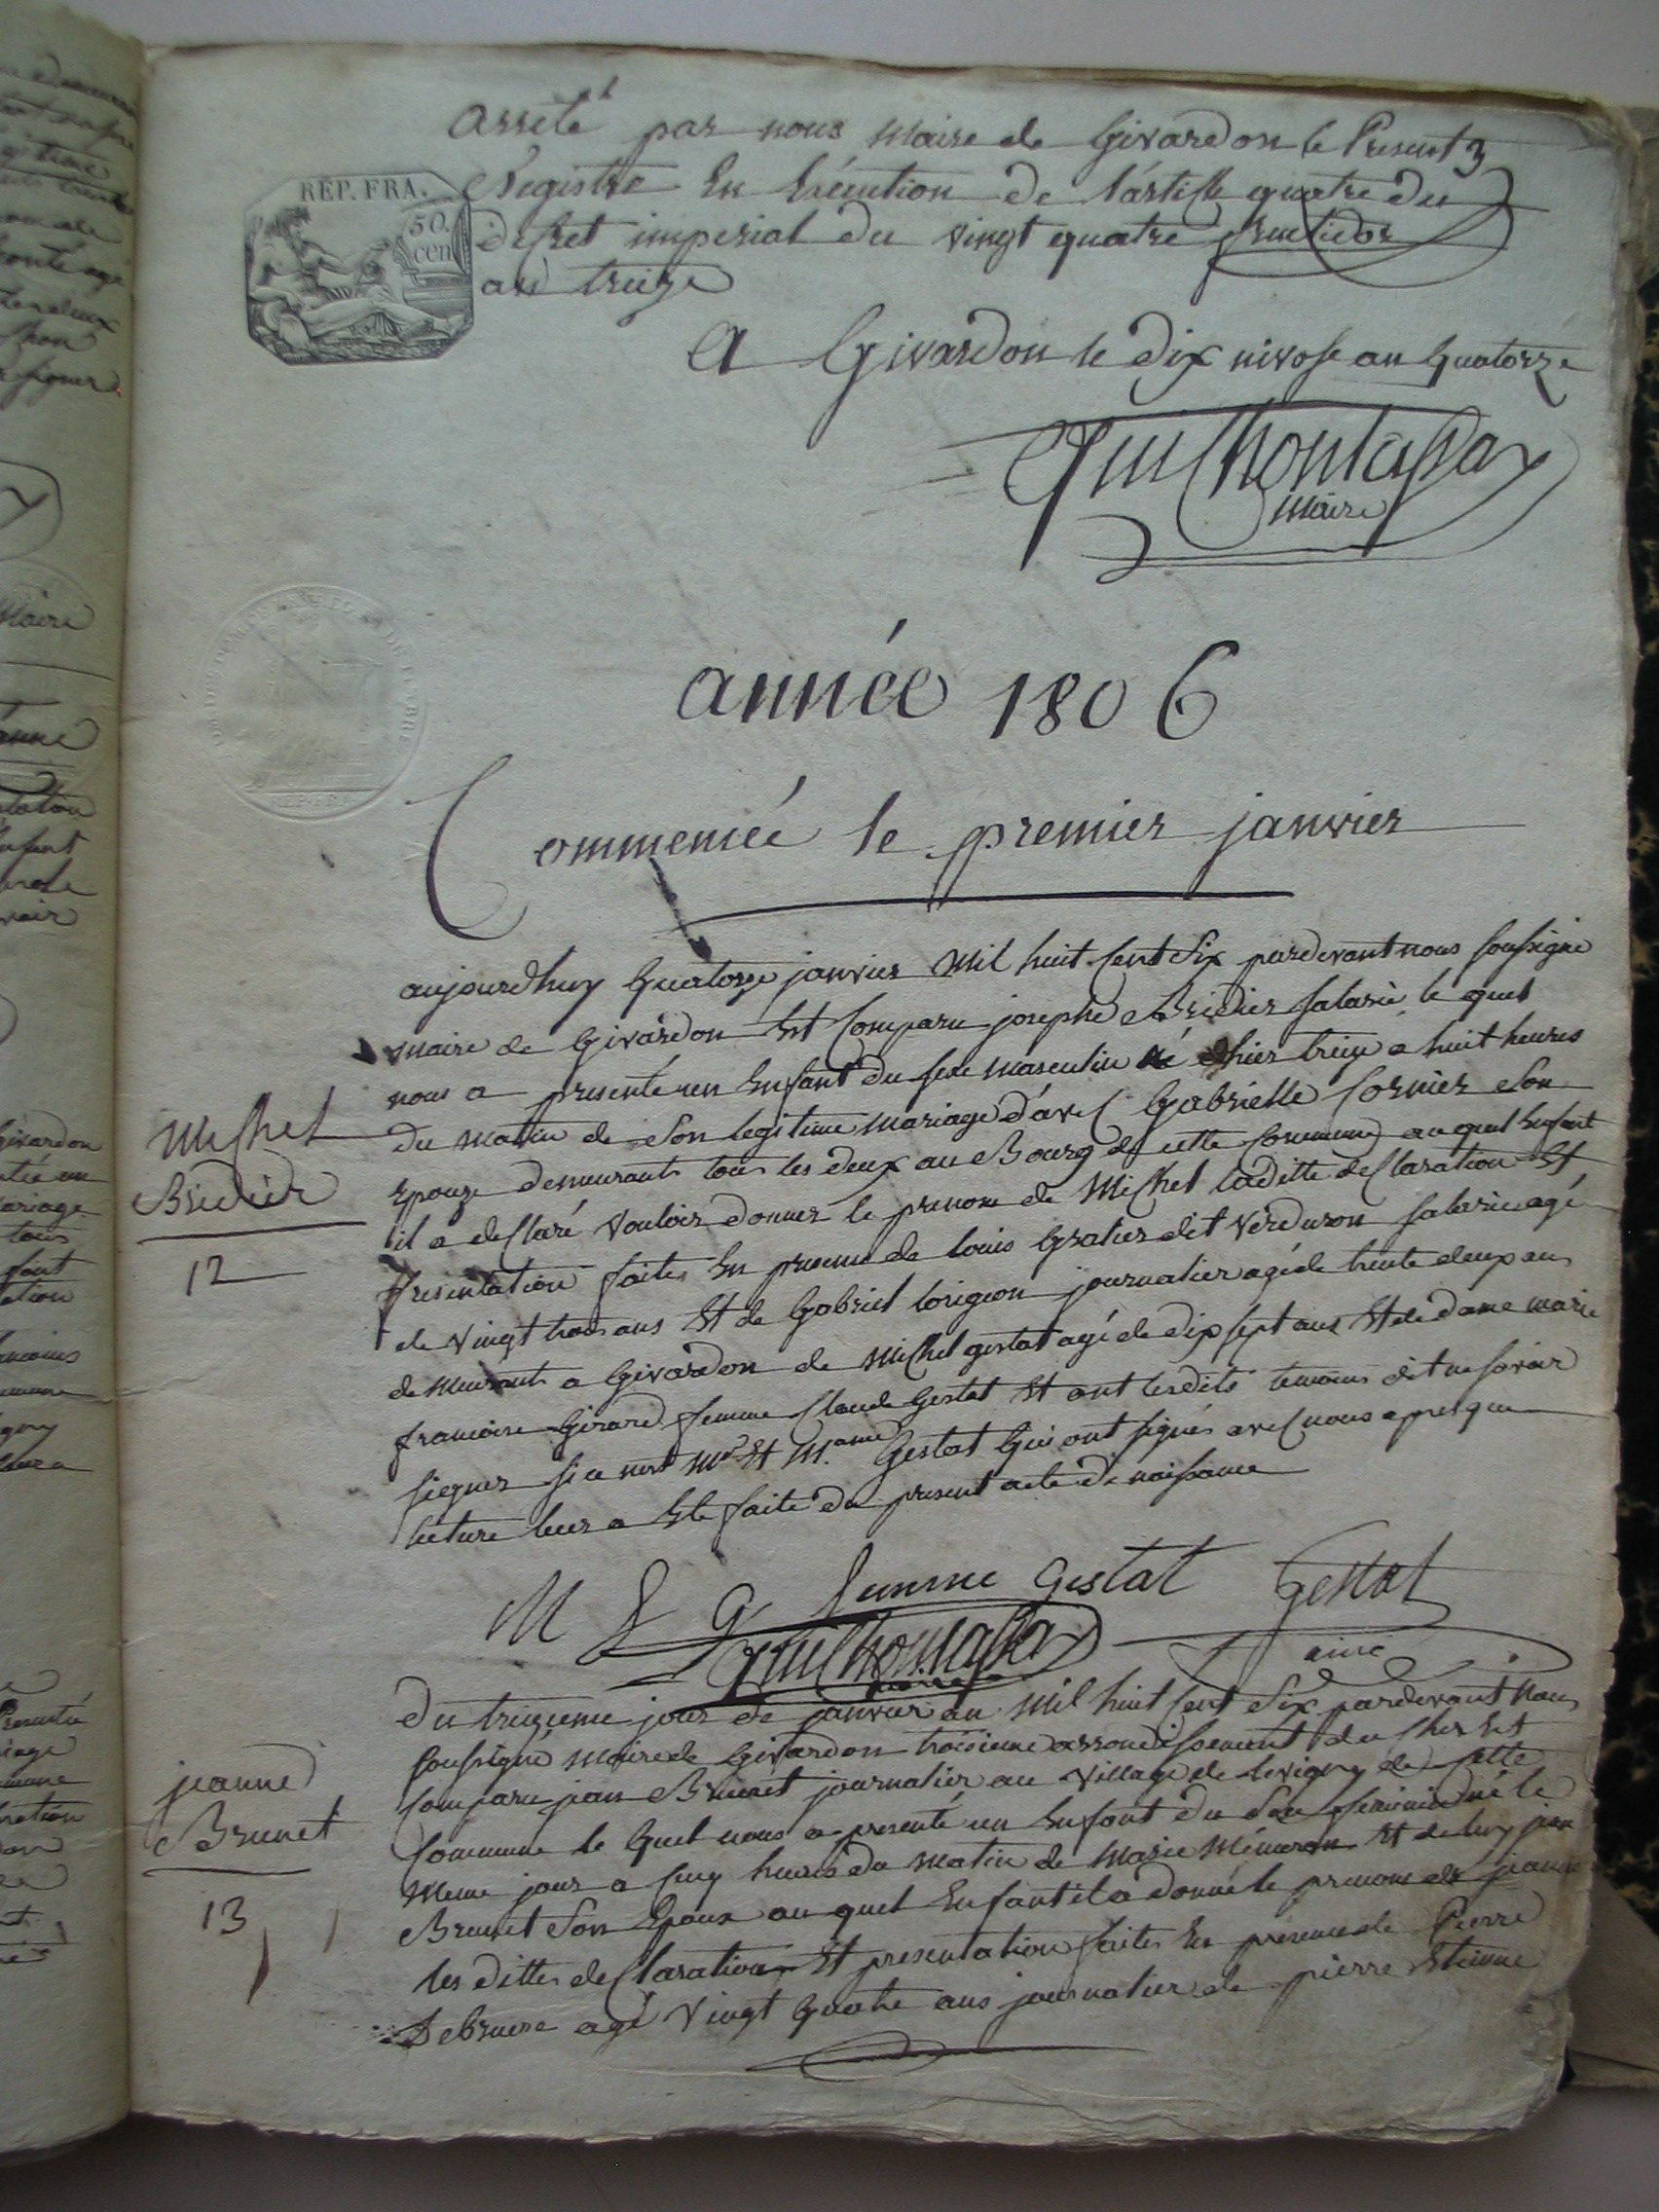 arreté par nous maire de Givardon le Present
REP. FRA.
50.
cen
Régistre En Exécution de l'article quatre du
décret imperial du vingt quatre fructidor
an treize
A Givardon le dix nivose an quatorze
maire
année 1806
Commencée le premier janvier
aujourdhuy quatorze janvier mil huit cent six pardevant nous soussigné
maire de Givardon Est comparu joseph Bridier salarié le quel
nous a presenté un Enfant du sexe masculin né d'hier treize a huit heures
du matin de son legitime mariage d'avec Gabrielle Cornier son
Michel
Epouze demeurants tous les deux au Bourg de cette commune au quel Enfant
Bridier
il a declaré vouloir donner le prenom de Michel laditte declaration Et
12
presentation faites En presence de louis Gratier dit Verduron salarié agé
de vingt trois ans Et de Gabriel lorigeon journalier agé de trente deux ans
demeurants a Givardon de Michel gestat agé de dix sept ans Et de dame marie
francoise Girard femme Claude Gestat Et ont lesdits temoins dit ne savoir
signer si ce nest Mr Et Mame Gestat qui ont signés avec nous apres que
lecture leur a Eté faite du present acte de naissance
M F G femme Gestat Gestat
ainé
maire
du treizieme jour de janvier an mil huit cent six pardevant nous
soussigné maire de Givardon troisieme arrondissement du Cher Est
jeanne
comparu jean Brunet journalier au village de levigny de cette
Brunet
commune le quel nous a presenté un Enfant du sexe feminin né le
13
meme jour a cinq heures du matin de Marie Mémeron Et de luy jean
Brunet son Epoux au quel Enfant il a donné le prenom de jeanne
les dittes declaration Et presentation faites En presence de Pierre
Debruere agé vingt quatre ans journalier de pierre Etienne